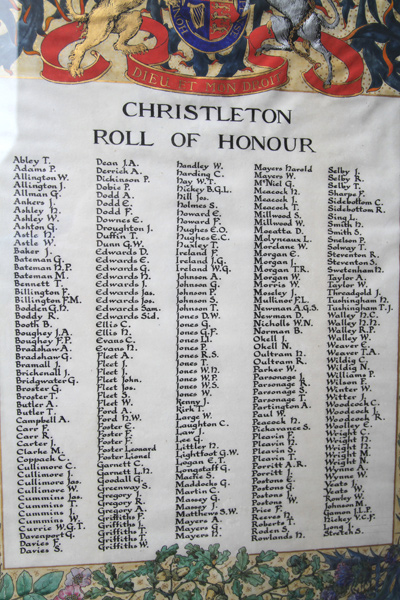 DIEU ET MON DROIT
CHRISTLETON
ROLL OF HONOUR
Abley T.
Adams P.
Allington W.
Allington J.
Allman G.
Ankers J.
Ashley N.
Ashley W.
Ashton G.
Astle N.
Astle W.
Baker J.
Bateman G.
Bateman H.P.
Bateman M.
Bennett T.
Billington F.
Billington F.M.
Bodden G.N.
Boddy R.
Booth B.
Boughey J.A.
Boughey F.P.
Bradshaw A.
Bradshaw G.
Bramall J.
Bricknall J.
Bridgwater G.
Broster G.
Broster T.
Butler A.
Butler T.
Campbell A.
Carr F.
Carr R.
Carter J.
Clarke M.
Coppack C.
Cullimore C.
Cullimore J.
Cullimore Jas.
Cullimore W.
Cummins Jas.
Cummins T.
Cummins J.
Cummins W.
Currie W.G.T.
Davenport G.
Davies F.
Davies S.
Dean J.A.
Derrick A.
Dickinson P.
Dobie P.
Dodd A.
Dodd E.
Dodd F.
Downes E.
Droughton J.
Duffin T.
Dunn G.W.
Edwards D.
Edwards E.
Edwards G.
Edwards H.
Edwards J.
Edwards Jas.
Edwards Jos.
Edwards Sam.
Edwards Sid.
Ellis C.
Ellis N.
Evans C.
Evans N.
Fleet A.
Fleet J.
Fleet J.
Fleet John.
Fleet Jos.
Fleet S.
Fleet W.
Ford A.
Ford H.W.
Foster E.
Foster F.
Foster J.
Foster Leonard
Foster Lionel
Garnett C.
Garnett L.H.
Goodall G.
Greenway S.
Gregory J.
Gregory R.
Gregory A.
Griffiths P.
Griffiths L.
Griffiths T.
Griffiths W.
Handley W.
Harding C.
Hay W.T.
Hickey B.G.L.
Hill Jos.
Holmes S.
Howard E.
Howard F.
Hughes E.O.
Hughes E.C.
Huxley T.
Ireland J.
Ireland T.G.
Ireland W.G.
Johnson A.
Johnson G.
Johnson F.
Johnson S.
Johnson T.
Jones D.W.
Jones G.
Jones G.F.
Jones Ll.
Jones P.
Jones R.S.
Jones T.
Jones W.H.
Jones W.P.
Jones W.T.
Jones W.
Kenny J.
Kirk T.
Large W.
Laughton C.
Law J.
Lee G.
Lettler N.
Lightfoot G.W.
Logan E.T.
Longstaff G.
Mackie S.
Maddocks G.
Martin C.
Massey G.
Massey
Matthews S.W.
Mayers A.
Mayers G.
Mayers H.
Mayers Harold
Mayers W.
McNiel G.
Meacock H.
Meacock J.
Meacock T.
Millwood S.
Millwood W.
Mosatta D.
Molyneaux L.
Morelane W.
Morgan E.
Morgan J.
Morgan T.R.
Morgan W.
Morris W.
Moseley J.
Mulliner F.L.
Newman A.G.S.
Newman D.
Nicholls W.N.
Norman B.
Okell J.
Okell N.
Oultram N.
Oultram R.
Parker W.
Parsonage J.
Parsonage R.
Parsonage S.
Parsonage T.
Partington A.
Paul W.
Peacock N.
Pickavance S.
Pleavin F.
Pleavin J.
Pleavin S.
Pleavin T.
Porritt A.R.
Porritt J.
Postons E.
Postons G.
Postons W.
Price F.
Reeves N.
Roberts T.
Roden S.
Rowlands H.
Selby J.
Selby R.
Selby T.
Sharpe F.
Sidebottom C.
Sidebottom R.
Sing L.
Smith H.
Smith S.
Snelson P.
Solway T.
Steventon R.
Stevenson S.
Swetenham H.
Taylor A.
Taylor W.
Threadgold J.
Tushingham H.
Tushingham T.J.
Walley N.C.
Walley N.J.
Walley R.P.
Walley W.
Weaver E.
Weaver T.A.
Wilding C.
Wilding N.
William P.
Wilson F.
Winter W.
Witter J.
Woodcock C.
Woodcock J.
Woodcock R.
Woolley E.
Wright C.
Wright N.
Wright J.
Wright M.
Wright W.
Wynne A.
Wynne
Yeats J.
Yeats W.
Yowley W.
Johnson N.
Gammon Ll.P.
Hickey V.C.F.
Long
Stretch S.